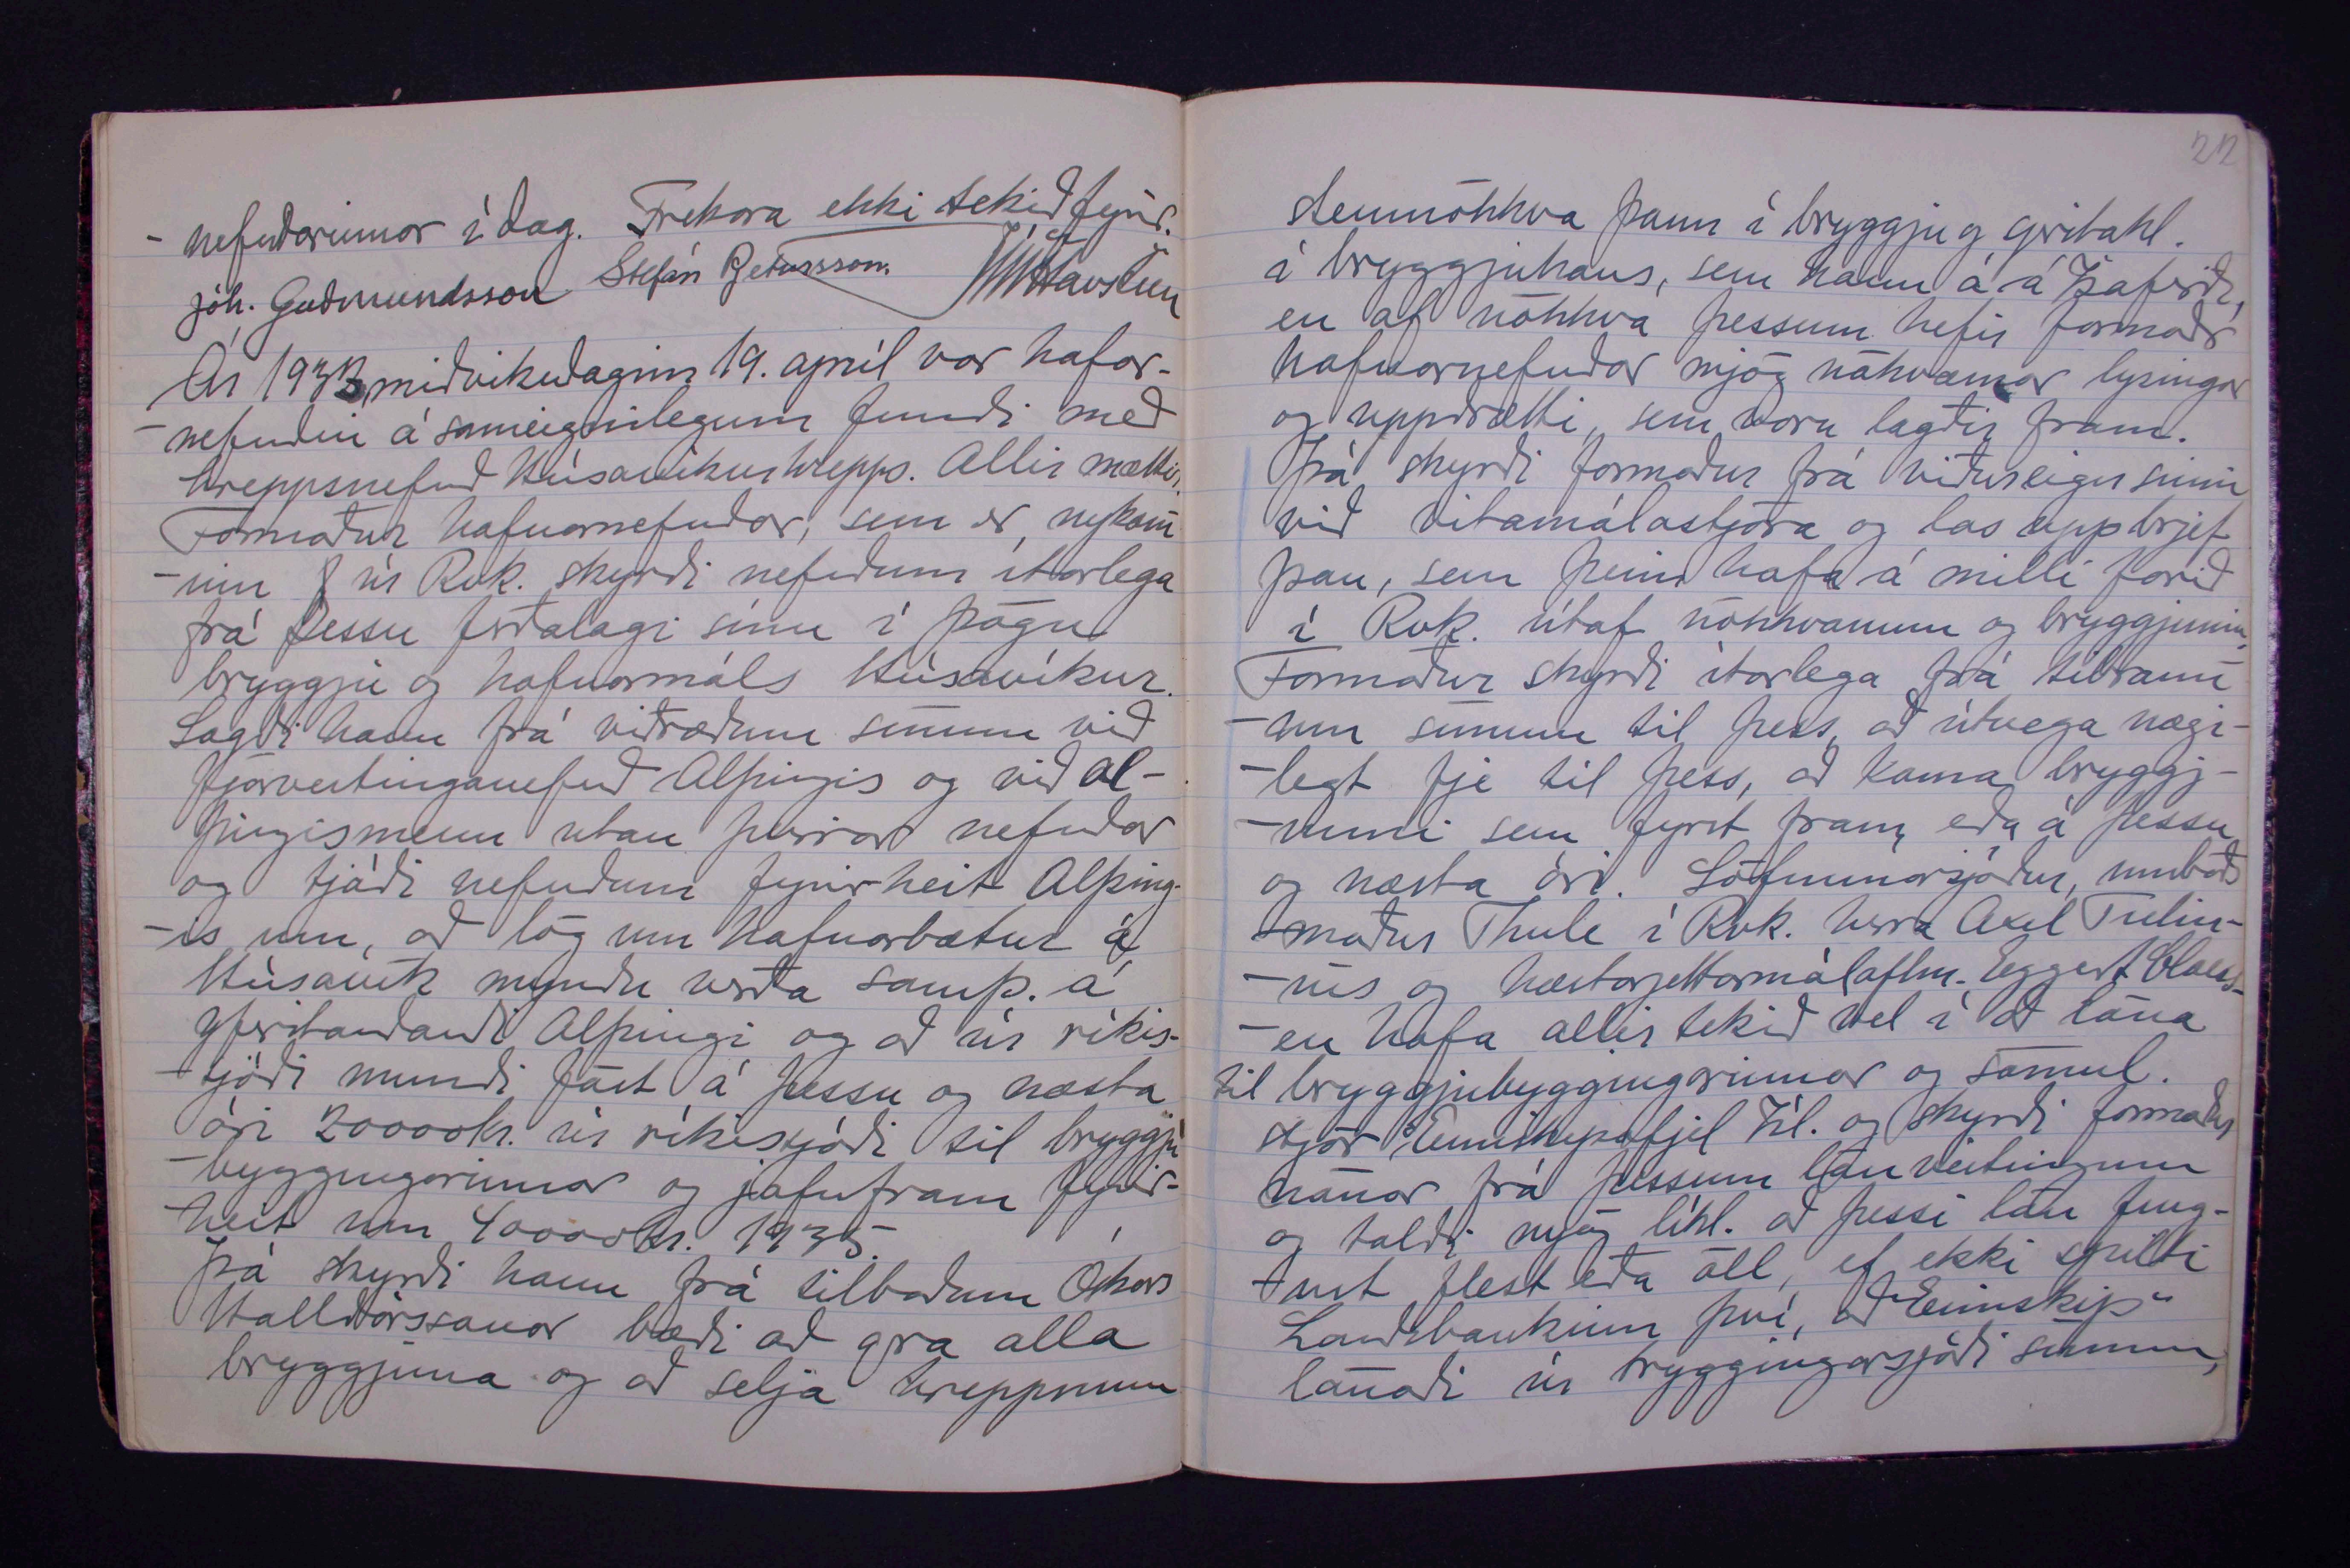 - nefndarinnar í dag. Frekara ekki tekið fyrir.
Jóh. Guðmundsson Stefán Pjetursson. JHHavsteen
Ár 1933, miðvikudaginn 19. apríl var hafnar-
-nefndin á sameiginlegum fundi með
hreppsnefnd Húsavíkurhrepps. Allir mættir.
Formaður hafnarnefndar, sem er nýkom-
-inn úr Rvk. skýrði nefndum ítarlega
frá þessu ferðalagi sínu í þágu
bryggju og hafnarmáls Húsavíkur.
Sagði hann frá viðræðum sínum við
fjárveitinganefnd Alþingis og við al-
þingismenn utan þeirrar nefndar
og tjáði nefndum fyrirheit Alþing-
-is um, að lög um hafnarbætur á
Húsavík myndu verða samþ. á
yfirstandandi Alþingi og að úr ríkis-
-sjóði mundi fást á þessu og næsta
ári 20000 kr. úr ríkissjóði til bryggju
-byggingarinnar og jafnframt fyrir-
heit um 40000 kr. 1935.
Þá skýrði hann frá tilboðum Óskars
Halldórssonar bæði að gera alla
bryggjuna og að selja hreppnum
22
steinnökkva þann í bryggju og
á bryggjuhaus, sem hann á á Ísafirði,
en af nökkva þessum hefir formaðr
hafnarnefndar mjög nákvæmar lýsingar
og uppdrætti, sem voru lagðir fram.
Þá skýrði formaður frá viðureign sinni
við vitamálastjóra og las upp brjef
þau, sem þeim hafa á milli farið
í Rvk. útaf nökkvanum og bryggjunni.
Formaður skýrði ítarlega frá tilraun-
-um sínum til þess, að útvega nægi-
-legt fje til þess, að koma bryggj-
-unni sem fyrst fram, eða á þessu
og næsta ári. Söfnunarsjóður, umboðs
-maður Thule í Rvk. herra Axel Tulin-
-ius og hæstarjettarmálaflm. Eggert Claes-
-en hafa allir tekið vel í að lána
til bryggjubyggingarinnar og sömul.
stjór Eimskipafjel Ísl. og skýrði formaður
nánar frá þessum lánveitingum
og taldi mjög líkl. að þessi lán feng-
-ust flest eða öll, ef ekki spillti
Landsbankinn því, að "Eimskip"
lánaði úr tryggingarsjóði sínum,